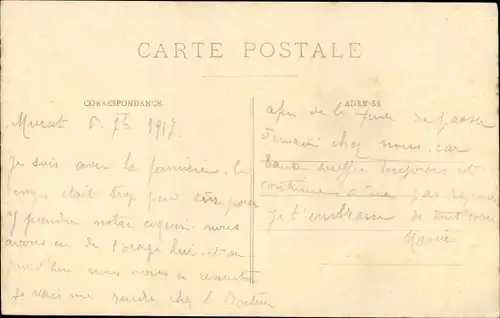 CARTE POSTALE
CORRESPONDANCE
Murat 6 7b 1917.
Je suis avec la fermière le
temps était trop peu sûr pour
y prendre notre coquin nous
avons eu de l'orage hier
nous nous en
Je vais me rendre chez le Docteur
ADRESSE
afin de la prier de passer
demain chez nous car
souffre toujours et
continue à ne pas
je t'embrasse de tout cœur
Marie